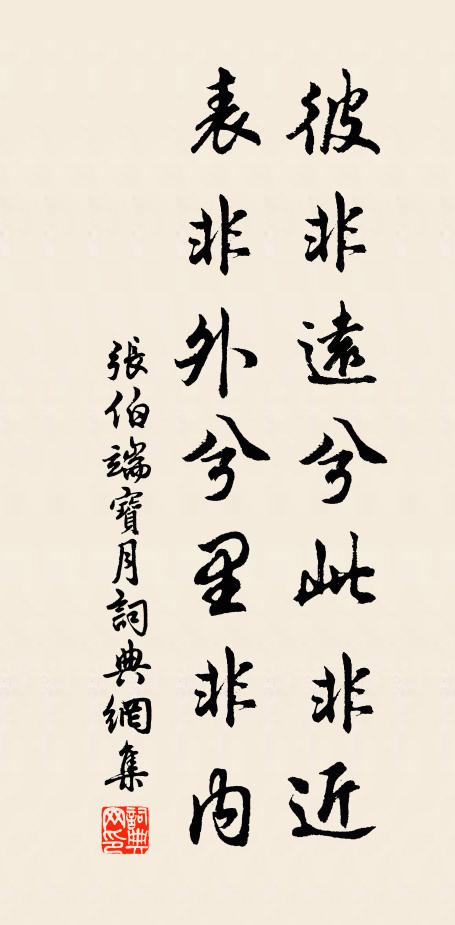 彼非遠兮此非近
表非外兮里非内
張伯端寶月詞典網集
詞典网印